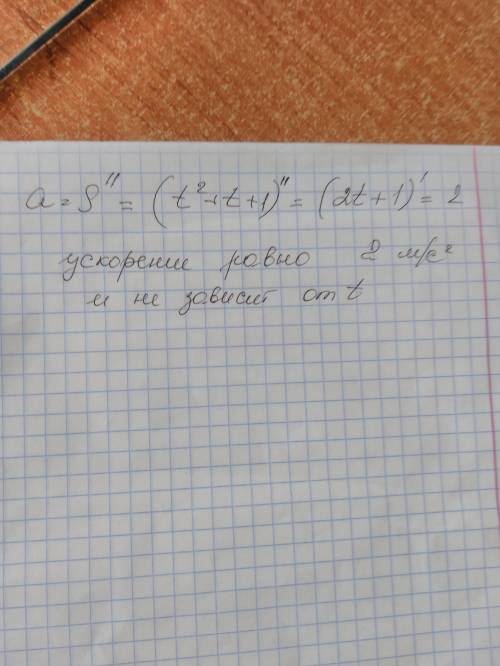 a = S'' = (t² + t + 1)'' = (2t + 1)' = 2
ускорение равно 2 м/с²
и не зависит от t